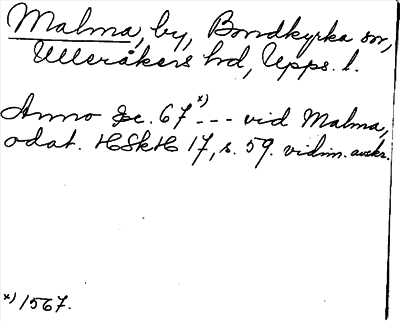 Malma, by, Bondkyrka sn,
Ulleråkers hd, Upps. l.
Anno &c. 67 x) --- vid Malma,
odat. HSkH 17, s. 59. vidim. avskr.
x) 1567.